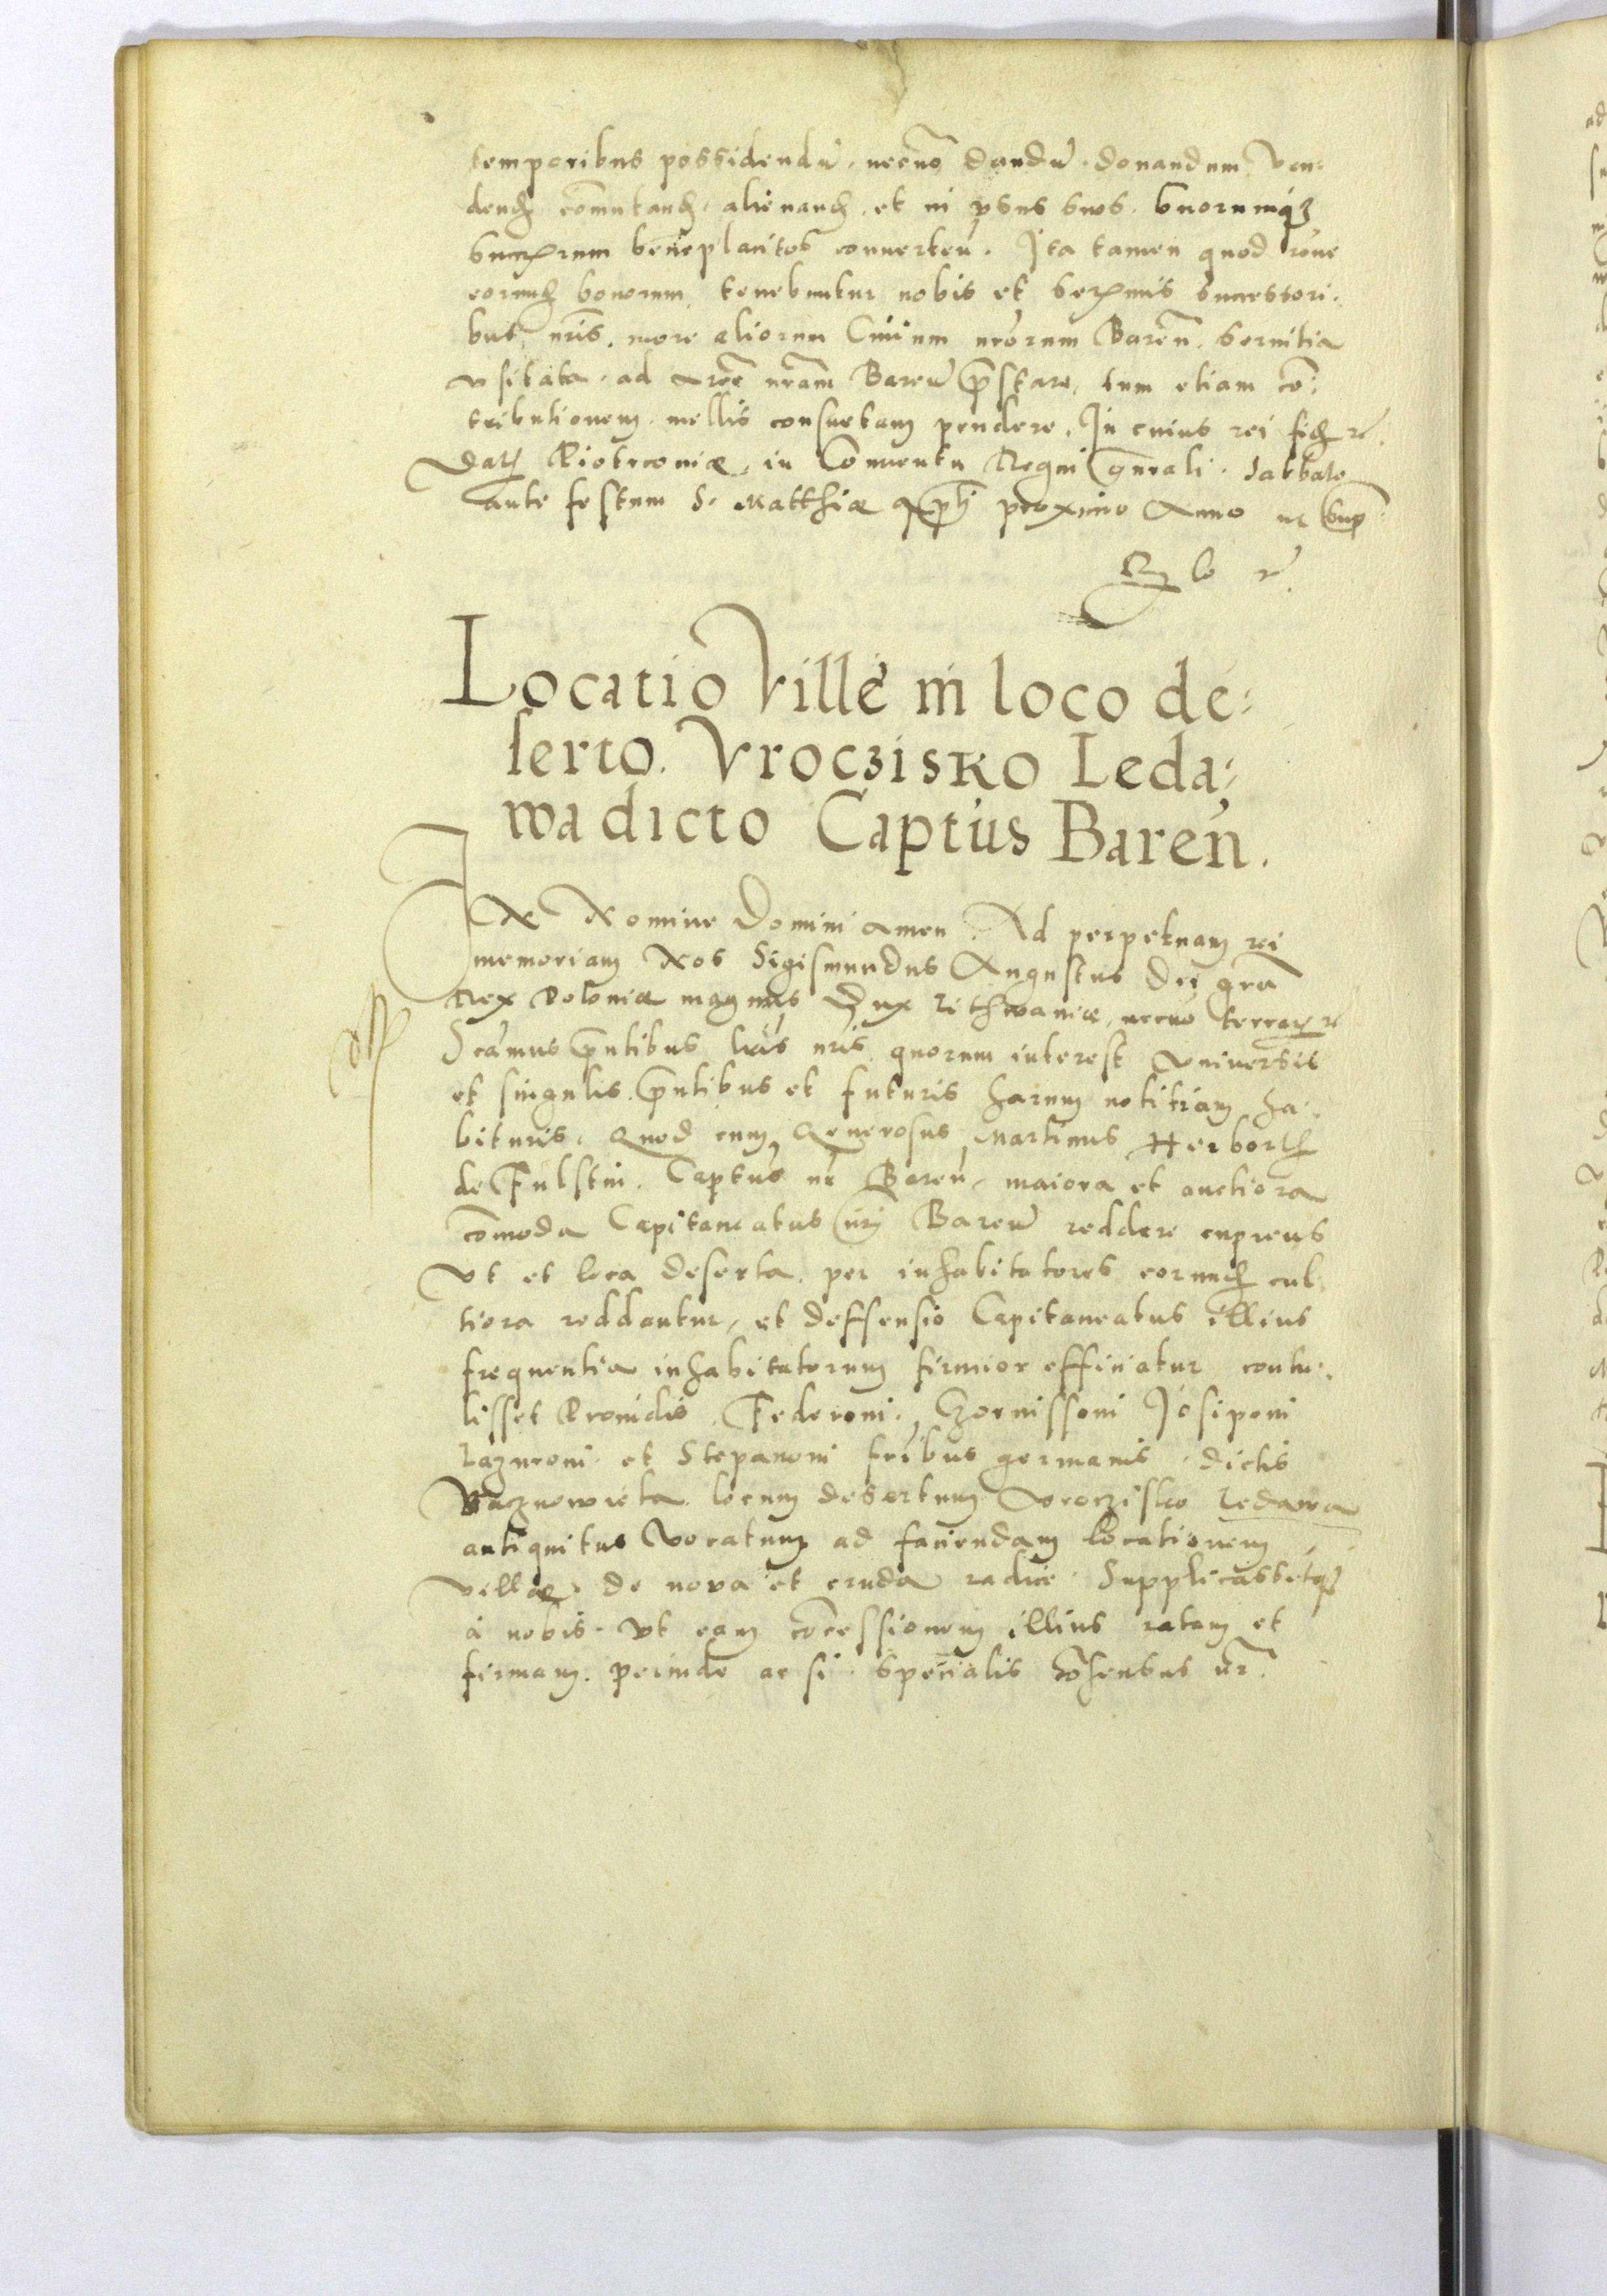 temporibus possidendũ. necnõ dandũ. donandum Ven-
dend̃ cõmutand̃. alienand̃. et in vsus suos. suorumqʒ
succes̃orum beneplacitos conuerten̄. Ita tamen quod rõne
eorund̃ bonorum, tenebuntur nobis et serenis̃ successori-
bus nr̃is. more aliorum Ciuium nr̃orum Baren̄. seruitia
vsitata. ad arcē nr̃am Baren̄ p̃stare, tum etiam cõ-
tributionem mellis consuetam pendere. In cuius rei fid̃ rc̃.
Dat̃ Piotrcoviæ, in Conuentu Regni gn̄rali. Sabbato
ante festum S. Matthiæ Ap̃li proximo Anno ut sup̃
Locatio Villę in loco de-
serto. Vroczisko Leda-
wa dicto Captũs Baren̄.
In Nomine Domini Amen. Ad perpetuam rei
memoriam Nos Sigismundus Augustus Dei gr̃a
Rex Poloniæ magnus Dux Lithwaniæ, necnõ terrar̃ rc̃
Significamus p̃ntibus lr̃is nr̃is quorum interest Vniversis
et singulis. p̃ntibus et futuris harum notitiam ha-
bituris. Quod cum Generosus Martinus Herborth
de Fulstin. Captũs nr̃ Baren̄, maiora et auctiora
cõmoda Capitaneatus nr̃i Baren̄ reddere cupiens
Vt et loca deserta. per inhabitatores eorund̃ cul
tiora reddantur, et deffensio Capitaneatus illius
frequentia inhabitatorum firmior efficiatur contu-
lisset Prouidis. Federoni. Czernissoni Josiponi
Lazuconi. et Stepanoni fr̃ibus germanis. dictis
locum desertum Vroczisko Ledawa
antiquitus Vocatum ad faciendam locationem
Villæ. de nova et cruda radice. Supplicassetqʒ
à nobis. Vt eam cõcessionem illius ratam et
firmam. perinde ac si specialis cõsensus nr̃.